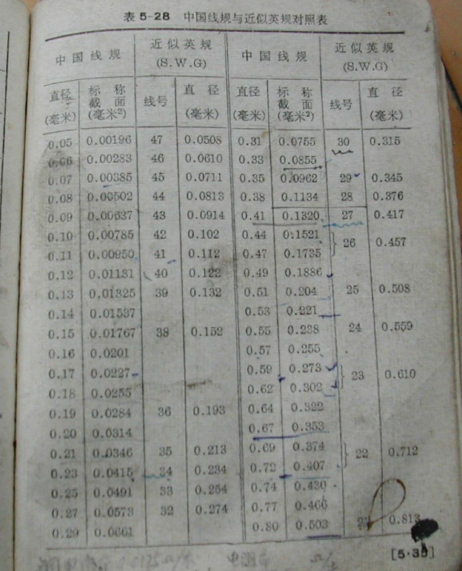 表 5-28 中国线规与近似英规对照表
中国线规 近似英规 (S.W.G) 中国线规 近似英规 (S.W.G)
直径 (毫米) 标称截面 (毫米²) 线号 直径 (毫米) 直径 (毫米) 标称截面 (毫米²) 线号 直径 (毫米)
0.05 0.00196 47 0.0508 0.31 0.0755 30 0.315
0.06 0.00283 46 0.0610 0.33 0.0855
0.07 0.00385 45 0.0711 0.35 0.0962 29 0.345
0.08 0.00502 44 0.0813 0.38 0.1134 28 0.376
0.09 0.00637 43 0.0914 0.41 0.1320 27 0.417
0.10 0.00785 42 0.102 0.44 0.1521 26 0.457
0.11 0.00950 41 0.112 0.47 0.1735
0.12 0.01131 40 0.122 0.49 0.1886
0.13 0.01325 39 0.132 0.51 0.204 25 0.508
0.14 0.01537 0.53 0.221
0.15 0.01767 38 0.152 0.55 0.238 24 0.559
0.16 0.0201 0.57 0.255
0.17 0.0227 0.59 0.273 23 0.610
0.18 0.0255 0.62 0.302
0.19 0.0284 36 0.193 0.64 0.322
0.20 0.0314 0.67 0.353
0.21 0.0346 35 0.213 0.69 0.374 22 0.712
0.23 0.0415 34 0.234 0.72 0.407
0.25 0.0491 33 0.254 0.74 0.430
0.27 0.0573 32 0.274 0.77 0.466
0.29 0.0661 0.80 0.503 0.813
[5-35]